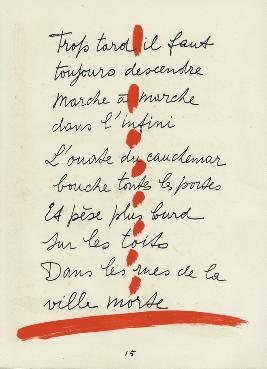 Trop tard, il faut
toujours descendre
Marche à marche
dans l'infini
L'ouate du cauchemar
bouche toutes les portes
Et pèse plus lourd
sur les toits
Dans les rues de la
ville morte
15